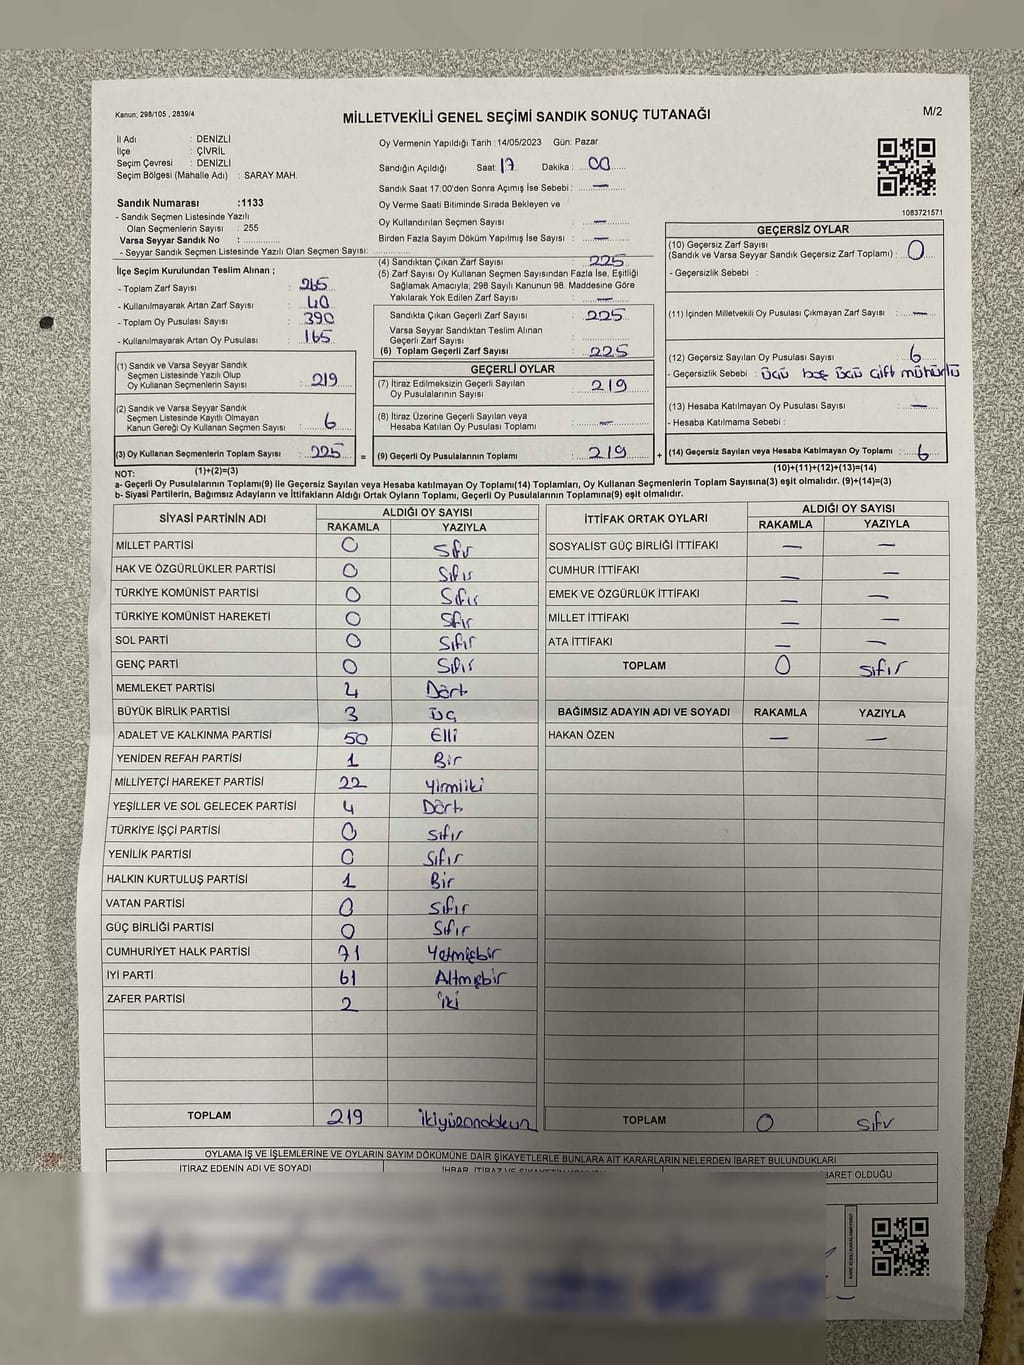 Kanun; 298/105 , 2839/4
MİLLETVEKİLİ GENEL SEÇİMİ SANDIK SONUÇ TUTANAĞI
M/2
İl Adı : DENİZLİ
İlçe : ÇİVRİL
Seçim Çevresi : DENİZLİ
Seçim Bölgesi (Mahalle Adı) : SARAY MAH.
Oy Vermenin Yapıldığı Tarih :14/05/2023 Gün: Pazar
Sandığın Açıldığı Saat: 17 Dakika : 00
Sandık Saat 17:00'den Sonra Açımış İse Sebebi : —
Oy Verme Saati Bitiminde Sırada Bekleyen ve
Oy Kullandırılan Seçmen Sayısı : —
Birden Fazla Sayım Döküm Yapılmış İse Sayısı : —
1083721571
Sandık Numarası :1133
- Sandık Seçmen Listesinde Yazılı
Olan Seçmenlerin Sayısı : 255
Varsa Seyyar Sandık No : ..............
- Seyyar Sandık Seçmen Listesinde Yazılı Olan Seçmen Sayısı: ..............
İlçe Seçim Kurulundan Teslim Alınan ;
- Toplam Zarf Sayısı : 265
- Kullanılmayarak Artan Zarf Sayısı : 40
- Toplam Oy Pusulası Sayısı : 390
- Kullanılmayarak Artan Oy Pusulası : 165
(1) Sandık ve Varsa Seyyar Sandık
Seçmen Listesinde Yazılı Olup
Oy Kullanan Seçmenlerin Sayısı : 219
(2) Sandık ve Varsa Seyyar Sandık
Seçmen Listesinde Kayıtlı Olmayan
Kanun Gereği Oy Kullanan Seçmen Sayısı : 6
(3) Oy Kullanan Seçmenlerin Toplam Sayısı : 225 =
(4) Sandıktan Çıkan Zarf Sayısı : 225
(5) Zarf Sayısı Oy Kullanan Seçmen Sayısından Fazla İse, Eşitliği
Sağlamak Amacıyla; 298 Sayılı Kanunun 98. Maddesine Göre
Yakılarak Yok Edilen Zarf Sayısı : —
Sandıkta Çıkan Geçerli Zarf Sayısı : 225
Varsa Seyyar Sandıktan Teslim Alınan
Geçerli Zarf Sayısı :
(6) Toplam Geçerli Zarf Sayısı : 225
GEÇERLİ OYLAR
(7) İtiraz Edilmeksizin Geçerli Sayılan
Oy Pusulalarının Sayısı : 219
(8) İtiraz Üzerine Geçerli Sayılan veya
Hesaba Katılan Oy Pusulası Toplamı : —
(9) Geçerli Oy Pusulalarının Toplamı : 219 +
GEÇERSİZ OYLAR
(10) Geçersiz Zarf Sayısı
(Sandık ve Varsa Seyyar Sandık Geçersiz Zarf Toplamı) : 0
- Geçersizlik Sebebi :
(11) İçinden Milletvekili Oy Pusulası Çıkmayan Zarf Sayısı : —
(12) Geçersiz Sayılan Oy Pusulası Sayısı : 6
- Geçersizlik Sebebi : üçü boş üçü çift mühürlü
(13) Hesaba Katılmayan Oy Pusulası Sayısı : —
- Hesaba Katılmama Sebebi :
(14) Geçersiz Sayılan veya Hesaba Katılmayan Oy Toplamı : 6
NOT: (1)+(2)=(3)
(10)+(11)+(12)+(13)=(14)
a- Geçerli Oy Pusulalarının Toplamı(9) ile Geçersiz Sayılan veya Hesaba Katılmayan Oy Toplamı(14) Toplamları, Oy Kullanan Seçmenlerin Toplam Sayısına(3) eşit olmalıdır. (9)+(14)=(3)
b- Siyasi Partilerin, Bağımsız Adayların ve İttifakların Aldığı Ortak Oyların Toplamı, Geçerli Oy Pusulalarının Toplamına(9) eşit olmalıdır.
SİYASİ PARTİNİN ADI ALDIĞI OY SAYISI
RAKAMLA YAZIYLA
MİLLET PARTİSİ 0 Sıfır
HAK VE ÖZGÜRLÜKLER PARTİSİ 0 Sıfır
TÜRKİYE KOMÜNİST PARTİSİ 0 Sıfır
TÜRKİYE KOMÜNİST HAREKETİ 0 Sıfır
SOL PARTİ 0 Sıfır
GENÇ PARTİ 0 Sıfır
MEMLEKET PARTİSİ 4 Dört
BÜYÜK BİRLİK PARTİSİ 3 üç
ADALET VE KALKINMA PARTİSİ 50 Elli
YENİDEN REFAH PARTİSİ 1 Bir
MİLLİYETÇİ HAREKET PARTİSİ 22 Yirmiiki
YEŞİLLER VE SOL GELECEK PARTİSİ 4 Dört
TÜRKİYE İŞÇİ PARTİSİ 0 sıfır
YENİLİK PARTİSİ 0 Sıfır
HALKIN KURTULUŞ PARTİSİ 1 Bir
VATAN PARTİSİ 0 Sıfır
GÜÇ BİRLİĞİ PARTİSİ 0 Sıfır
CUMHURİYET HALK PARTİSİ 71 Yetmişbir
İYİ PARTİ 61 Altmışbir
ZAFER PARTİSİ 2 iki
TOPLAM 219 ikiyüzondokuz
İTTİFAK ORTAK OYLARI ALDIĞI OY SAYISI
RAKAMLA YAZIYLA
SOSYALİST GÜÇ BİRLİĞİ İTTİFAKI — —
CUMHUR İTTİFAKI — —
EMEK VE ÖZGÜRLÜK İTTİFAKI — —
MİLLET İTTİFAKI — —
ATA İTTİFAKI — —
TOPLAM 0 sıfır
BAĞIMSIZ ADAYIN ADI VE SOYADI RAKAMLA YAZIYLA
HAKAN ÖZEN — —
TOPLAM 0 sıfır
OYLAMA İŞ VE İŞLEMLERİNE VE OYLARIN SAYIM DÖKÜMÜNE DAİR ŞİKAYETLERLE BUNLARA AİT KARARLARIN NELERDEN İBARET BULUNDUKLARI
İTİRAZ EDENİN ADI VE SOYADI
BARET OLDUĞU